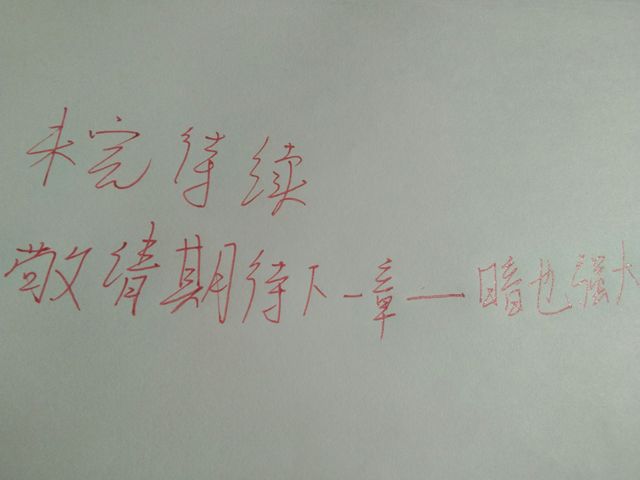 未完待续
敬请期待下一章——暗也强大